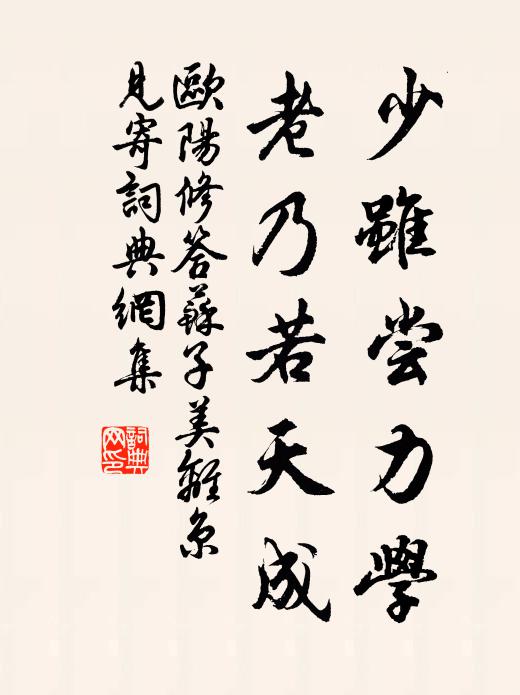 少雖尝力學
老乃若天成
歐陽修答蘇子美離京
見寄詞典網集
詞典
网印